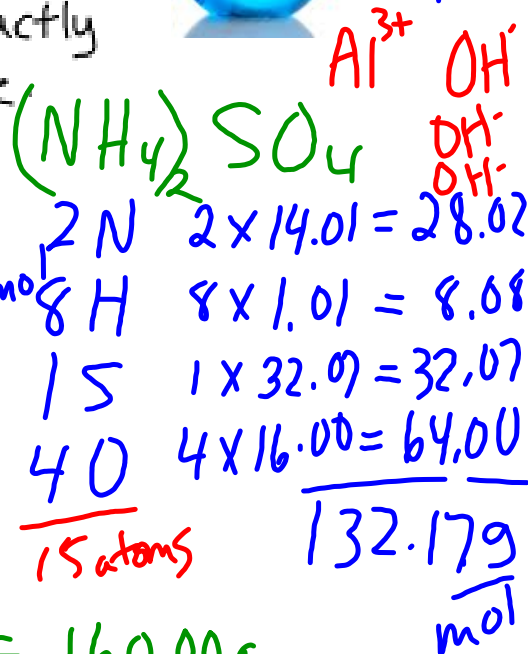 actly
Al³⁺ OH⁻
OH⁻
OH⁻
(NH₄)₂ SO₄
2 N 2 x 14.01 = 28.02
8 H 8 x 1.01 = 8.08
1 S 1 x 32.07 = 32.07
4 O 4 x 16.00 = 64.00
15 atoms
132.17 g
mol